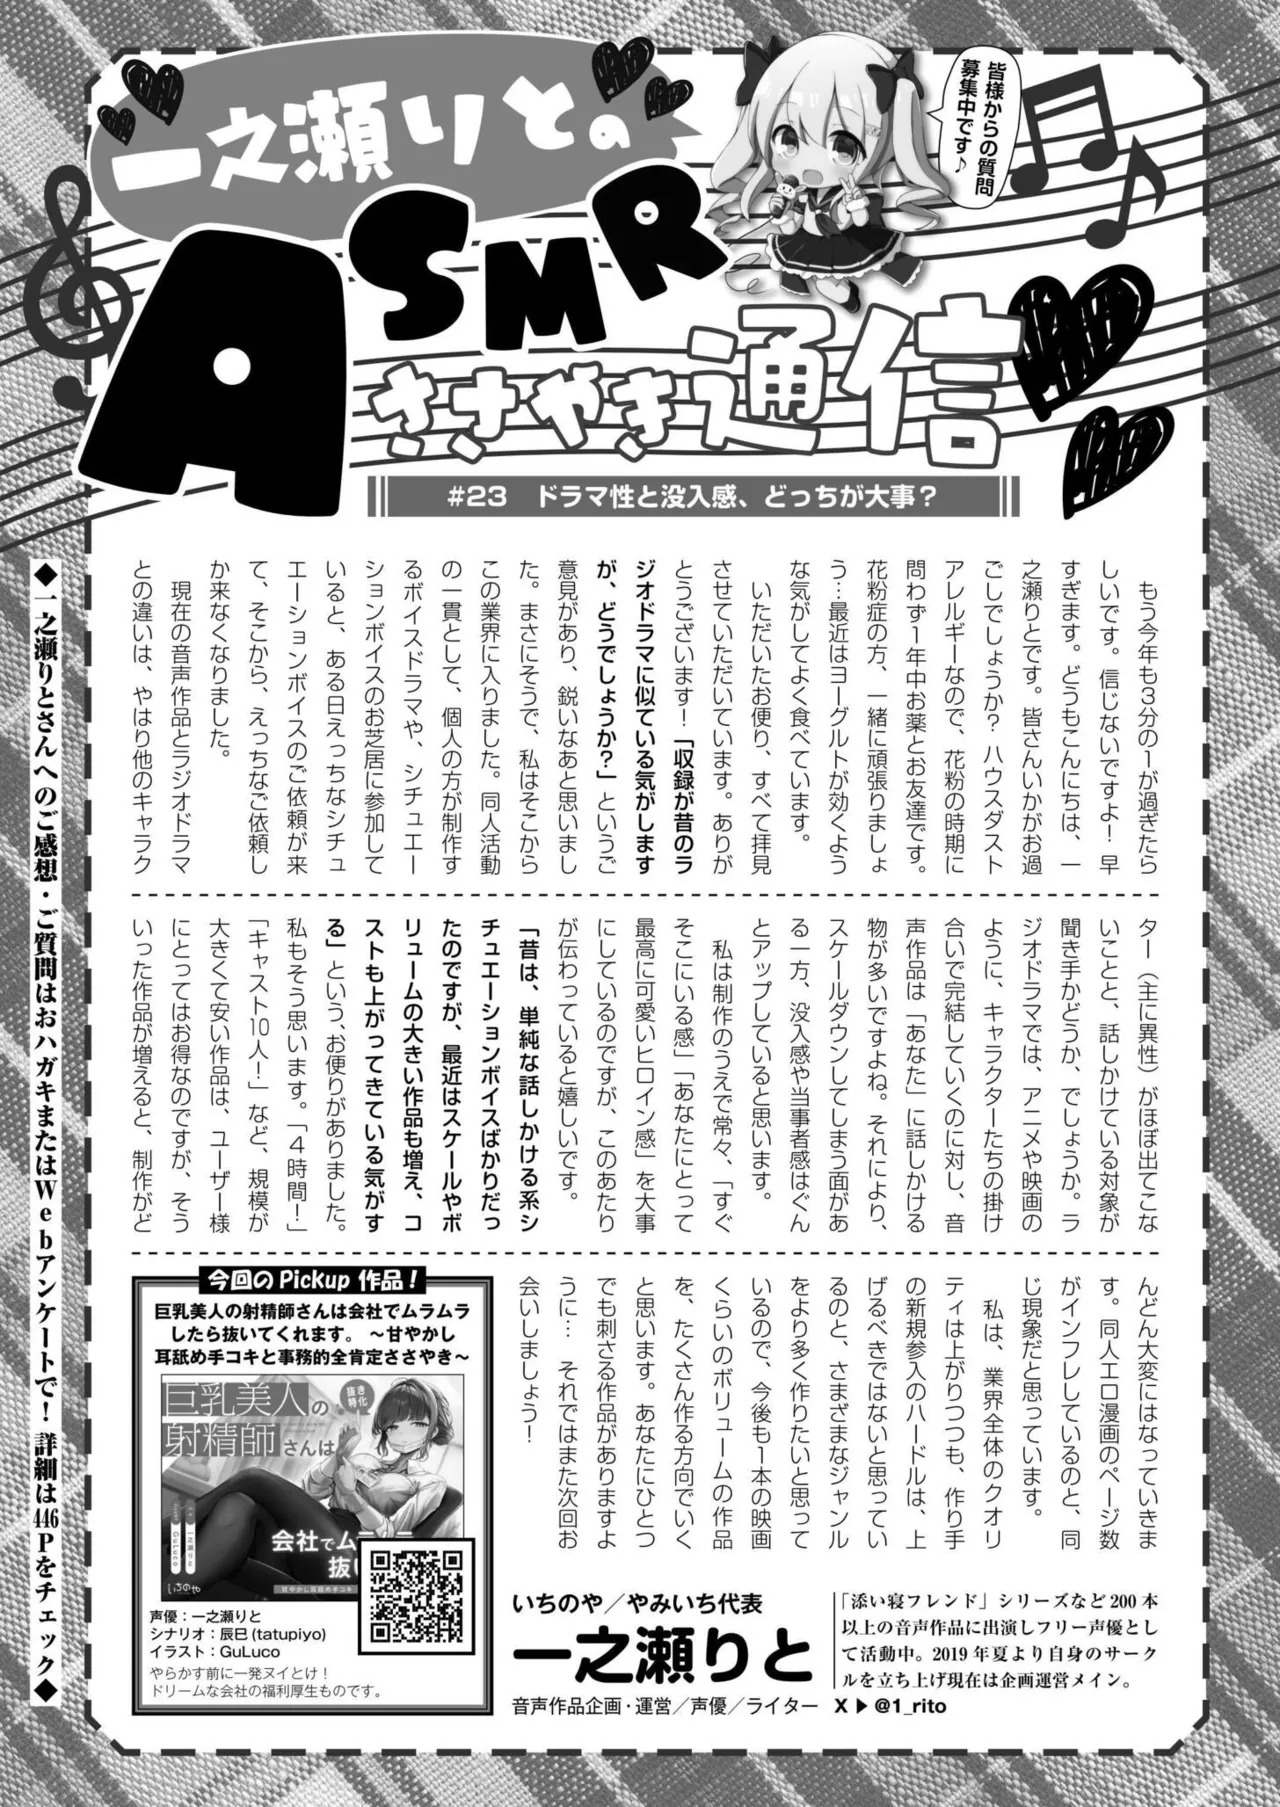 一之瀬りとの
ASMR
ささやき通信
皆様からの質問
募集中です♪
#23 ドラマ性と没入感、どっちが大事?
もう今年も3分の1が過ぎたら
しいです。信じないですよ!早
すぎます。どうもこんにちは、一
之瀬りとです。皆さんいかがお過
ごしでしょうか?ハウスダスト
アレルギーなので、花粉の時期に
問わず1年中お薬とお友達です。
花粉症の方、一緒に頑張りましょ
う…最近はヨーグルトが効くよう
な気がしてよく食べています。
いただいたお便り、すべて拝見
させていただいています。ありが
とうございます!「収録が昔のラ
ジオドラマに似ている気がします
が、どうでしょうか?」というご
意見があり、鋭いなあと思いまし
た。まさにそうで、私はそこから
この業界に入りました。同人活動
の一貫として、個人の方が制作す
るボイスドラマや、シチュエー
ションボイスのお芝居に参加して
いると、ある日えっちなシチュ
エーションボイスのご依頼が来
て、そこから、えっちなご依頼し
か来なくなりました。
現在の音声作品とラジオドラマ
との違いは、やはり他のキャラク
ター(主に異性)がほぼ出てこな
いことと、話しかけている対象が
聞き手かどうか、でしょうか。ラ
ジオドラマでは、アニメや映画の
ように、キャラクターたちの掛け
合いで完結していくのに対し、音
声作品は「あなた」に話しかける
物が多いですよね。それにより、
スケールダウンしてしまう面があ
る一方、没入感や当事者感はぐん
とアップしていると思います。
私は制作のうえで常々、「すぐ
そこにいる感」「あなたにとって
最高に可愛いヒロイン感」を大事
にしているのですが、このあたり
が伝わっていると嬉しいです。
「昔は、単純な話しかける系シ
チュエーションボイスばかりだっ
たのですが、最近はスケールやボ
リュームの大きい作品も増え、コ
ストも上がってきている気がす
る」という、お便りがありました。
私もそう思います。「4時間!」
「キャスト10人!」など、規模が
大きくて安い作品は、ユーザー様
にとってはお得なのですが、そう
いった作品が増えると、制作がど
んどん大変にはなっていきま
す。同人エロ漫画のページ数
がインフレしているのと、同
じ現象だと思っています。
私は、業界全体のクオリ
ティは上がりつつも、作り手
の新規参入のハードルは、上
げるべきではないと思ってい
るのと、さまざまなジャンル
をより多く作りたいと思って
いるので、今後も1本の映画
くらいのボリュームの作品
を、たくさん作る方向でいく
と思います。あなたにひとつ
でも刺さる作品がありますよ
うに… それではまた次回お
会いしましょう!
今回のPickup作品!
巨乳美人の射精師さんは会社でムラムラ
したら抜いてくれます。 ～甘やかし
耳舐め手コキと事務的全肯定ささやき～
巨乳美人の
射精師さんは
抜き
特化
会社でム
抜い
甘やかし耳舐め手コキ
一之瀬りと
GuLuco
いちのや
声優:一之瀬りと
シナリオ:辰巳(tatupiyo)
イラスト:GuLuco
やらかす前に一発ヌイとけ!
ドリームな会社の福利厚生ものです。
いちのや/やみいち代表
一之瀬りと
音声作品企画・運営/声優/ライター
「添い寝フレンド」シリーズなど200本
以上の音声作品に出演しフリー声優とし
て活動中。2019年夏より自身のサーク
ルを立ち上げ現在は企画運営メイン。
X▶@1_rito
◆一之瀬りとさんへのご感想・ご質問はおハガキまたはWebアンケートで!詳細は446Pをチェック◆